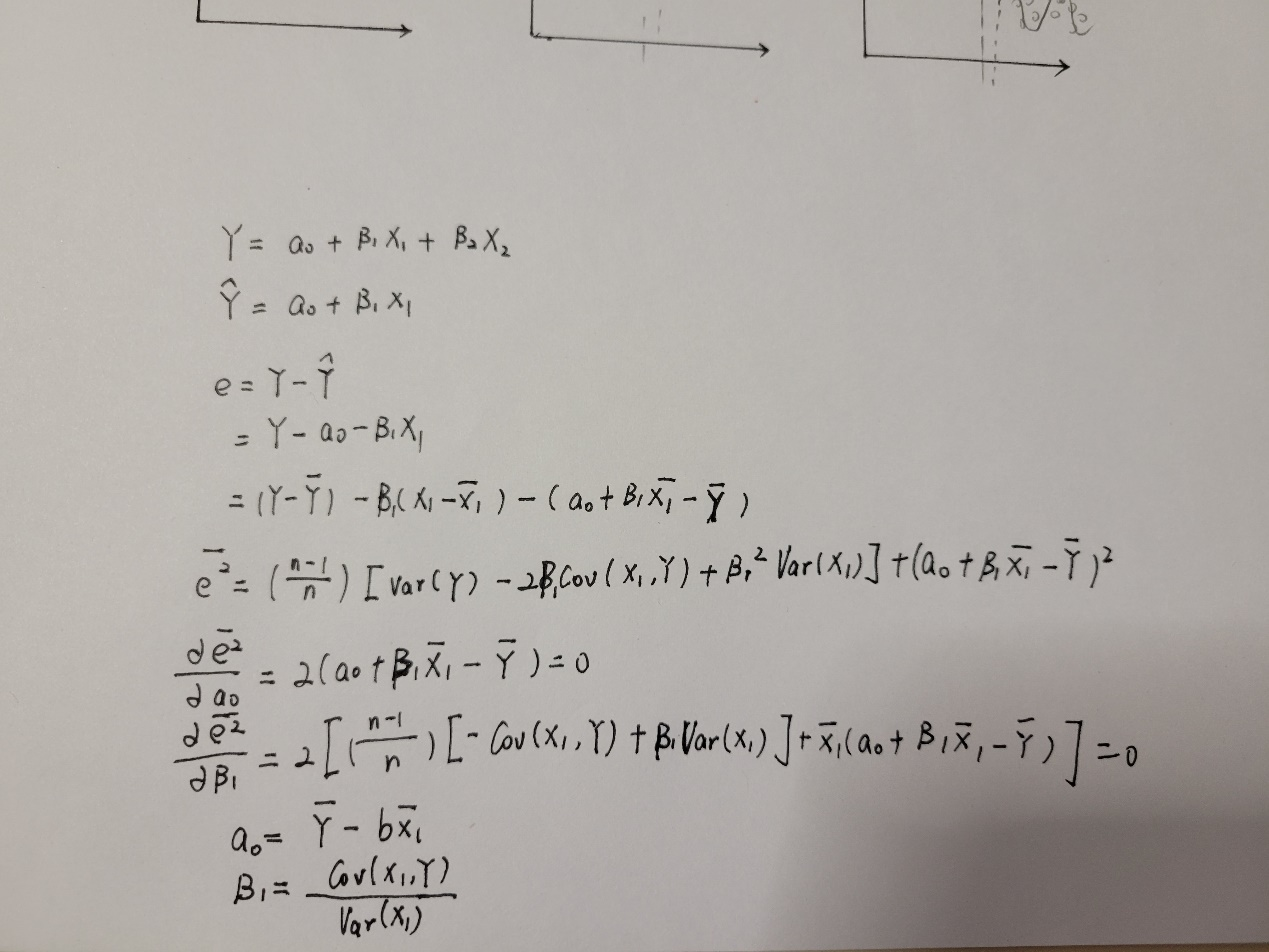 Y = a₀ + β₁X₁ + β₂X₂
Ŷ = a₀ + β₁X₁
e = Y - Ŷ
= Y - a₀ - β₁X₁
= (Y - Ȳ) - β₁(X₁ - X̄₁) - (a₀ + β₁X̄₁ - Ȳ)
e̅² = (n-1/n) [Var(Y) - 2β₁Cov(X₁,Y) + β₁² Var(X₁)] + (a₀ + β₁X̄₁ - Ȳ)²
∂e̅²/∂a₀ = 2(a₀ + β₁X̄₁ - Ȳ) = 0
∂e̅²/∂β₁ = 2[(n-1/n)[-Cov(X₁,Y) + β₁Var(X₁)] + X̄₁(a₀ + β₁X̄₁ - Ȳ)] = 0
a₀ = Ȳ - bX̄₁
β₁ = Cov(X₁,Y)/Var(X₁)